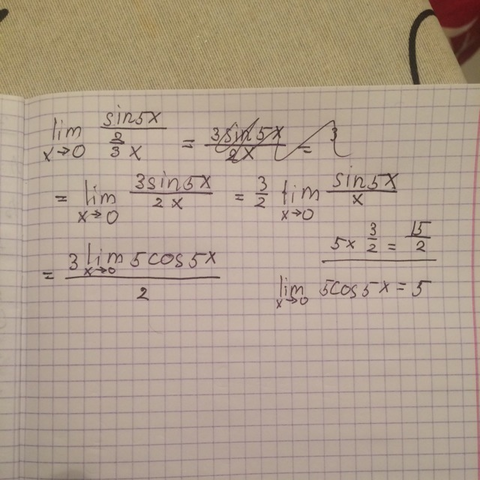 lim x→0 sin5x / (2/3 x) = 3sin5x / 2x =
= lim x→0 3sin5x / 2x = 3/2 lim x→0 sin5x / x
= 3 lim x→0 5cos5x / 2
5x 3/2 = 15/2
lim x→0 5cos5x = 5